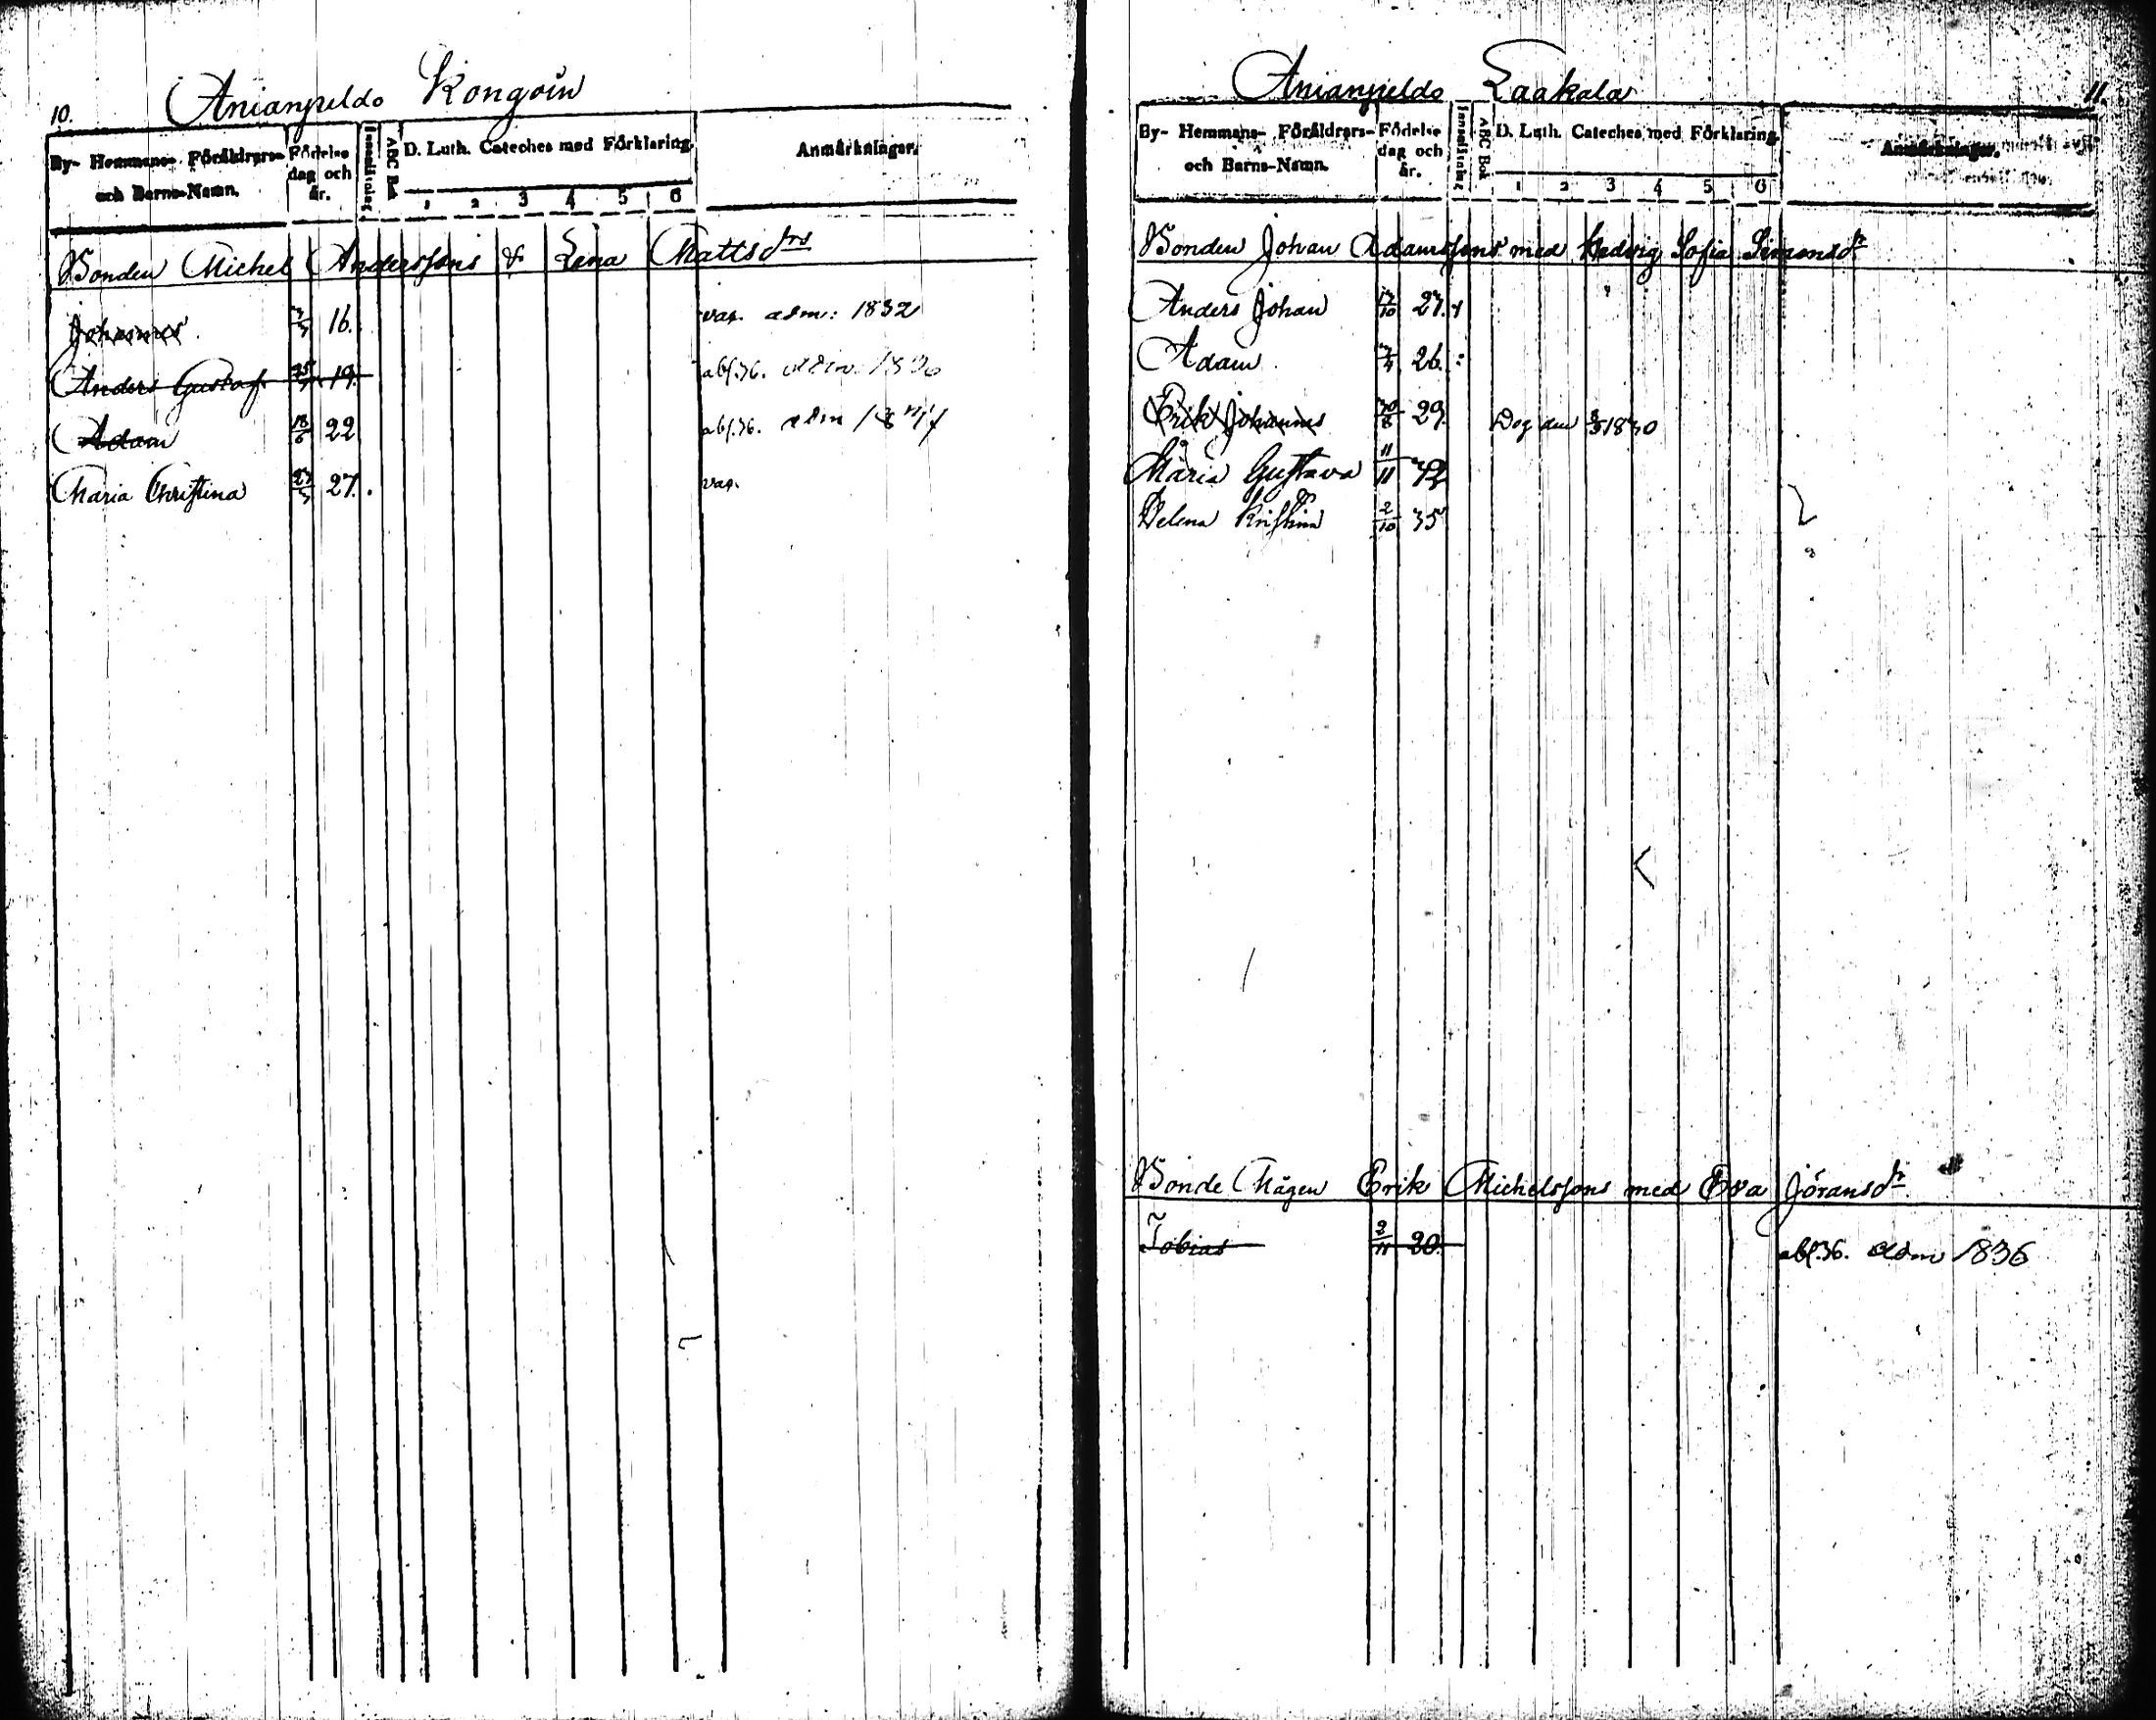 10.
Anianpeldo Kongoin
By- Hemmans- Föräldrars- och Barns-Namn.
Födelse dag och år.
Innanläsning
ABC Bok
D. Luth. Cateches med Förklaring.
1 2 3 4 5 6
Anmärkningar.
Bonden Michel Anderssons & Lena Mattsdrs
Johannes 16. vac. adm: 1832
Anders Gustaf 25 19. abs. 36.
Adam 18/6 22 abs. 36. adm
Maria Christina 27. vac.
11.
Anianpeldo Laakala
By- Hemmans- Föräldrars- och Barns-Namn.
Födelse dag och år.
Innanläsning
ABC Bok
D. Luth. Cateches med Förklaring.
1 2 3 4 5 6
Anmärkningar.
Bonden Johan Adamssons med Hedvig Sofia Simonsdr
Anders Johan 27.
Adam 26.
Erik Johannes 29. Dog den 1830
Maria Gustava 11/11
Helena Kristina 2/10 35
Bonde Mågen Erik Michelssons med Eva Jöransdr
Tobias 2/11 20. abs. 36. adm 1836